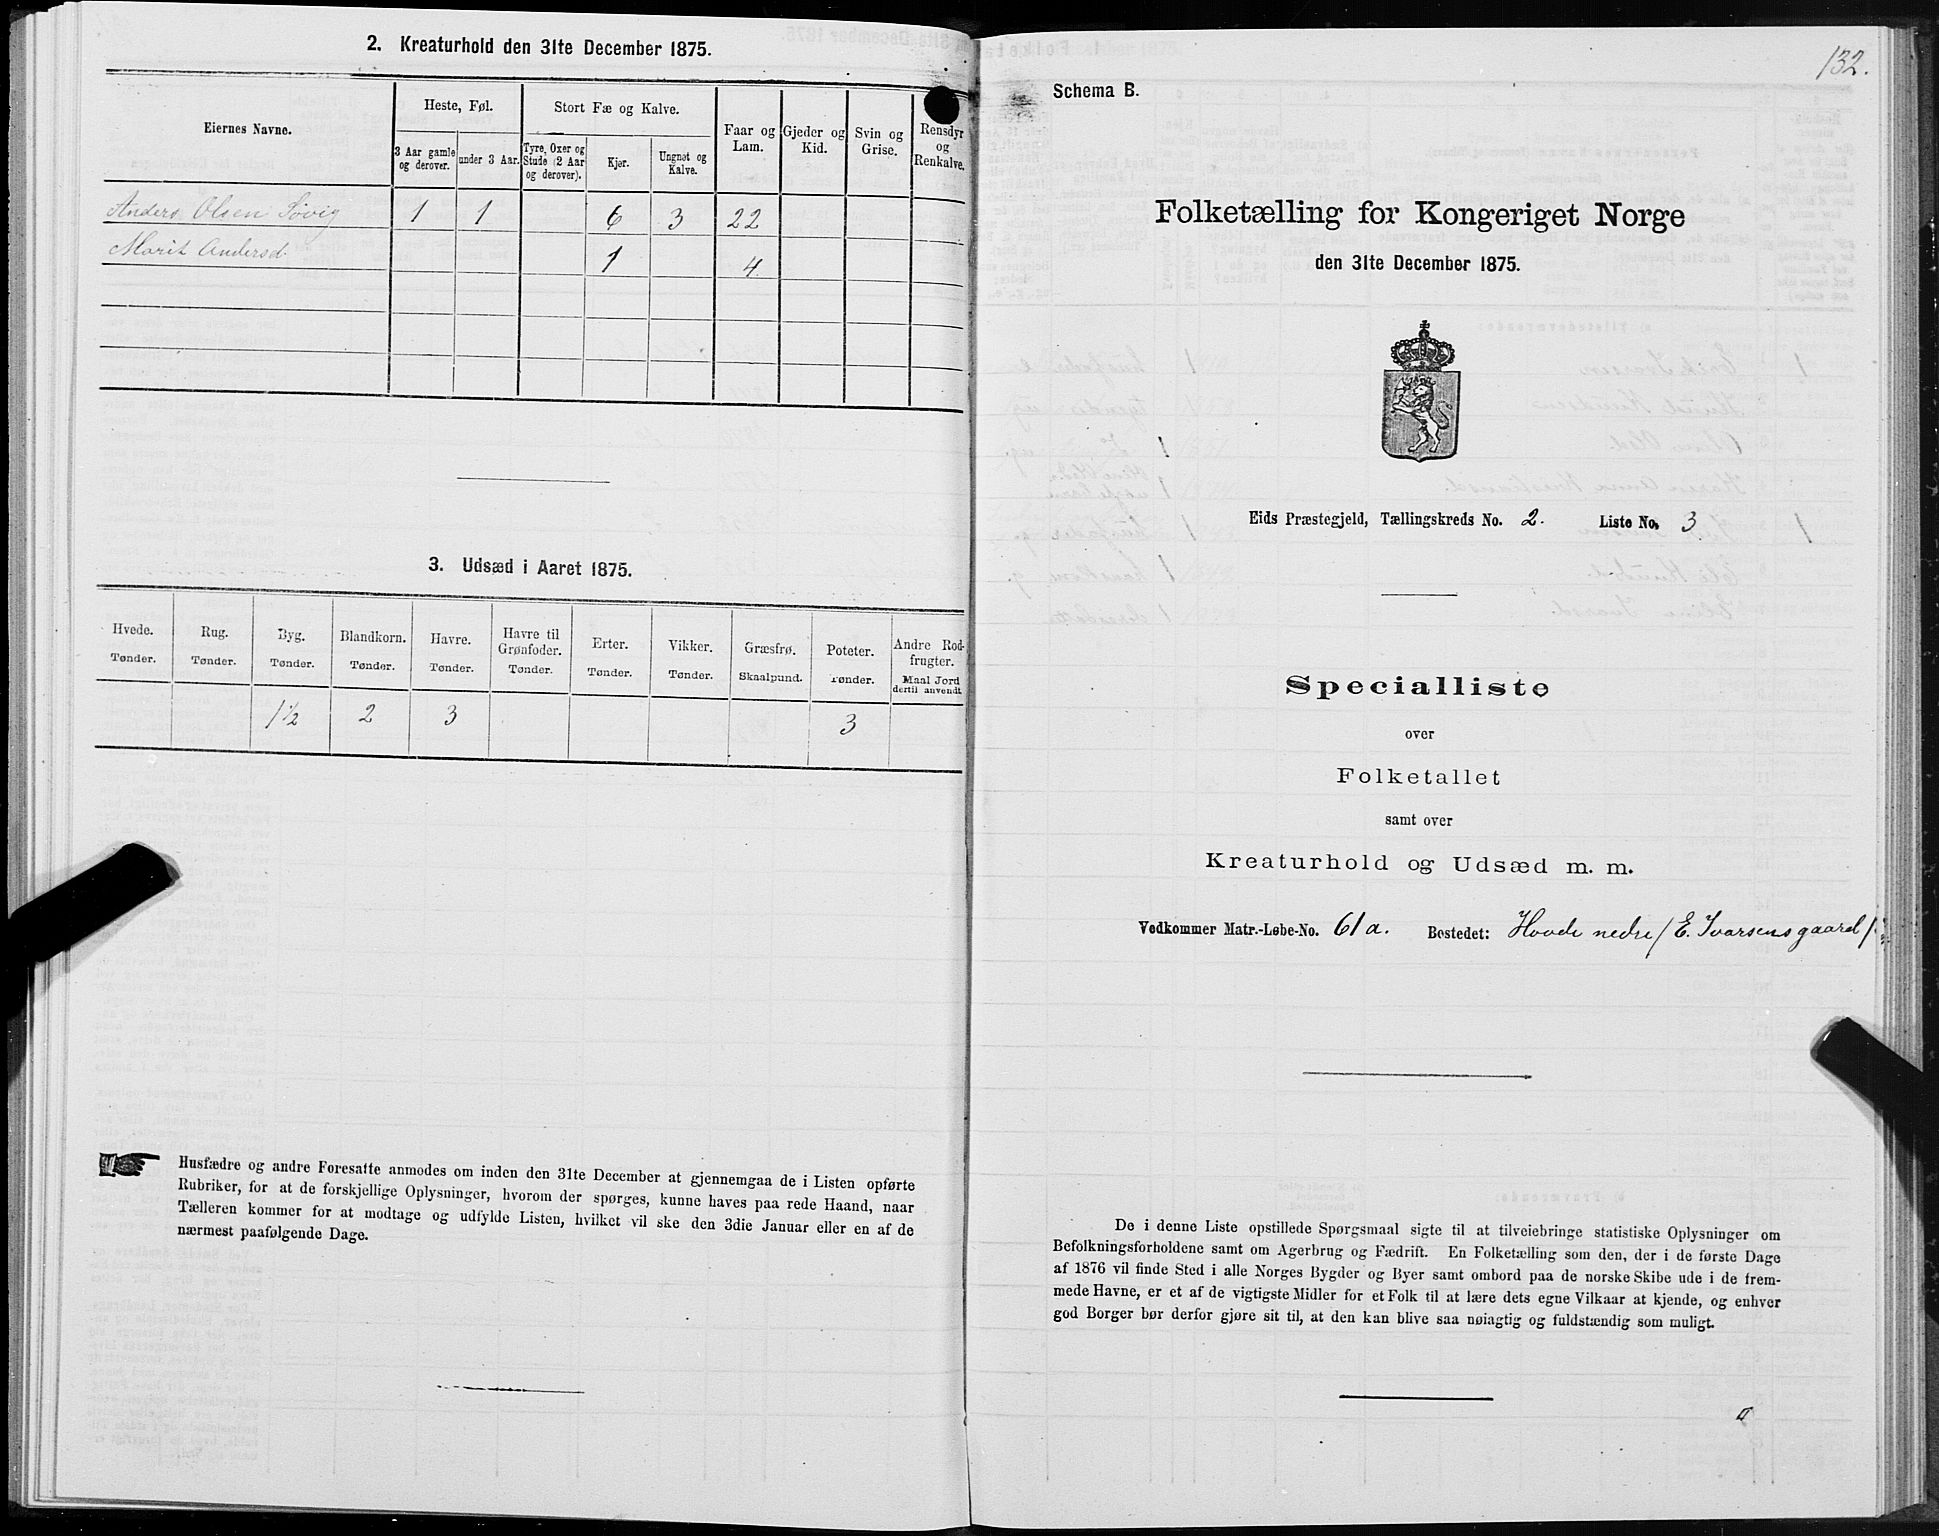 2. Kreaturhold den 31te December 1875.
Eiernes Navne.
Heste, Føl.
3 Aar gamle og derover.
under 3 Aar.
Stort Fæ og Kalve.
Tyre, Oxer og Stude (2 Aar og derover).
Kjør.
Ungnøt og Kalve.
Faar og Lam.
Gjeder og Kid.
Svin og Grise.
Rensdyr og Renkalve.
Anders Olsen Søvig 1 1 6 3 22
Marit Andersd. 1 4
3. Udsæd i Aaret 1875.
Hvede. Rug. Byg. Blandkorn. Havre. Havre til Grønfoder. Erter. Vikker. Græsfrø. Poteter. Andre Rodfrugter.
Tønder. Tønder. Tønder. Tønder. Tønder. Tønder. Tønder. Tønder. Skaalpund. Tønder. Maal Jord dertil anvendt
1½ 2 3 3
Husfædre og andre Foresatte anmodes om inden den 31te December at gjennemgaa de i Listen opførte
Rubriker, for at de forskjellige Oplysninger, hvorom der spørges, kunne haves paa rede Haand, naar
Tælleren kommer for at modtage og udfylde Listen, hvilket vil ske den 3die Januar eller en af de
nærmest paafølgende Dage.
132.
Schema B.
Folketælling for Kongeriget Norge
den 31te December 1875.
Eids Præstegjeld, Tællingskreds No. 2. Liste No. 3
Specialliste
over
Folketallet
samt over
Kreaturhold og Udsæd m. m.
Vedkommer Matr.-Løbe-No. 61a. Bostedet: Hovde nedre / E. Ivarsens gaard /
De i denne Liste opstillede Spørgsmaal sigte til at tilveiebringe statistiske Oplysninger om
Befolkningsforholdene samt om Agerbrug og Fædrift. En Folketælling som den, der i de første Dage
af 1876 vil finde Sted i alle Norges Bygder og Byer samt ombord paa de norske Skibe ude i de frem-
mede Havne, er et af de vigtigste Midler for et Folk til at lære dets egne Vilkaar at kjende, og enhver
god Borger bør derfor gjøre sit til, at den kan blive saa nøiagtig og fuldstændig som muligt.